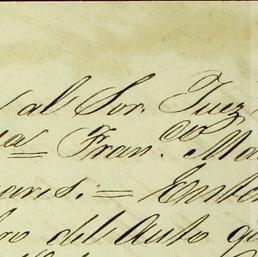 al Sor. Juez
Fran.co Ma
ares. = Enter
ro del Auto qu